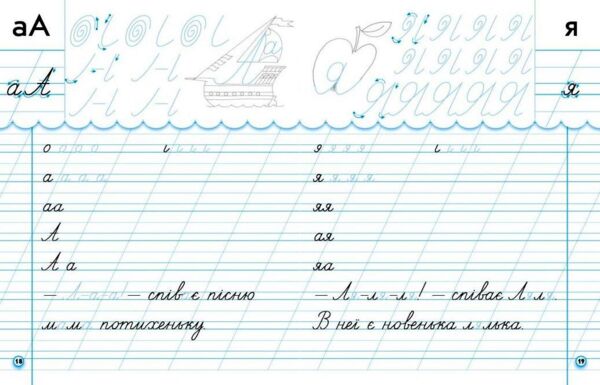 аА
аА
о о о о о і і і і і
а а а а
аа
А
А а
— А-а-а! — співає пісню
мама потихеньку.
18
я
я
я я я я я і і і і і
я я я я
яя
ая
яа
— Ля-ля-ля! — співає Ляля.
В неї є новенька лялька.
19